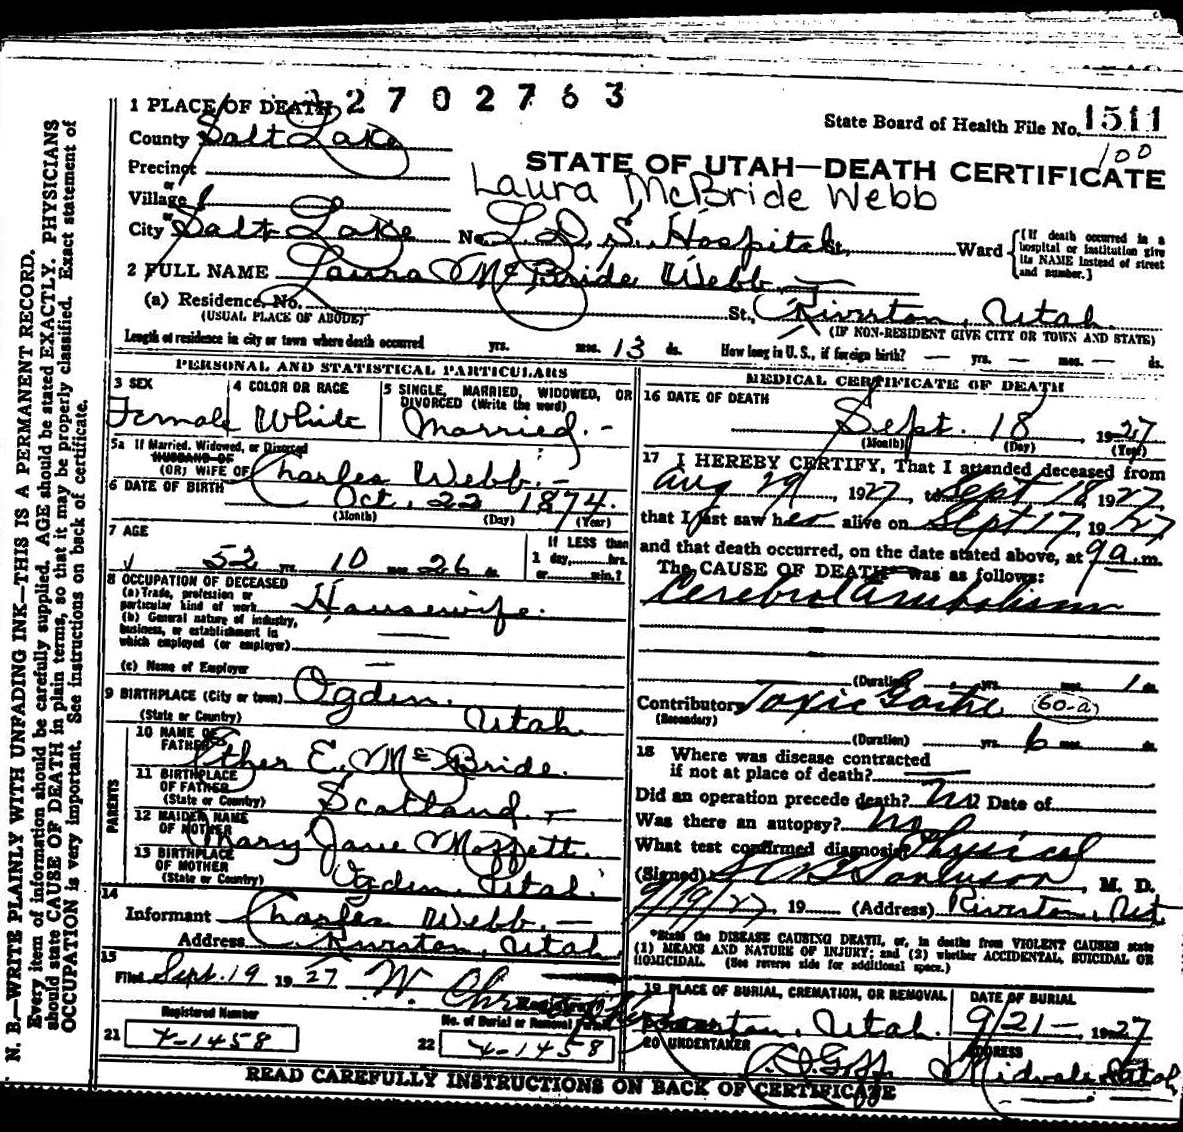 2702763
1 PLACE OF DEATH
State Board of Health File No. 1511
100
County Salt Lake
STATE OF UTAH—DEATH CERTIFICATE
Precinct
Laura McBride Webb
or
Village
or
City Salt Lake No. L. D. S. Hospital St., Ward
[If death occurred in a hospital or institution give its NAME instead of street and number.]
2 FULL NAME Laura McBride Webb
(a) Residence, No. St., Riverton, Utah.
(USUAL PLACE OF ABODE)
(IF NON-RESIDENT GIVE CITY OR TOWN AND STATE)
Length of residence in city or town where death occurred yrs. mos. 13 ds. How long in U. S., if foreign birth? — yrs. — mos. — ds.
PERSONAL AND STATISTICAL PARTICULARS
3 SEX
Female
4 COLOR OR RACE
White
5 SINGLE, MARRIED, WIDOWED, OR
DIVORCED (Write the word)
Married.
5a If Married, Widowed, or Divorced
HUSBAND OF
(OR) WIFE OF Charles Webb.
6 DATE OF BIRTH Oct. 22 1874.
(Month) (Day) (Year)
7 AGE
52 yrs. 10 mos. 26 ds.
If LESS than
1 day, hrs.
or min.?
8 OCCUPATION OF DECEASED
(a) Trade, profession or
particular kind of work Housewife.
(b) General nature of industry,
business, or establishment in
which employed (or employer)
(c) Name of Employer —
9 BIRTHPLACE (City or town) Ogden.
(State or Country) Utah.
PARENTS
10 NAME OF
FATHER Ether E. McBride.
11 BIRTHPLACE
OF FATHER
(State or Country) Scotland.
12 MAIDEN NAME
OF MOTHER Mary Jane Moffett.
13 BIRTHPLACE
OF MOTHER
(State or Country) Ogden, Utah.
14
Informant Charles Webb.
Address Riverton, Utah
15
Filed Sept. 19 1927 W.
Registered Number
21 X-1458
No. of Burial or Removal Permit
22 X-1458
MEDICAL CERTIFICATE OF DEATH
16 DATE OF DEATH
Sept. 18, 1927
(Month) (Day) (Year)
17 I HEREBY CERTIFY, That I attended deceased from
Aug 29, 1927, to Sept 18 1927
that I last saw her alive on Sept 17, 1927
and that death occurred, on the date stated above, at 9 a. m.
The CAUSE OF DEATH* was as follows:
Cerebral Embolism
(Duration) yrs. mos. 1 ds.
Contributory Toxic Goitre (60-a)
(Secondary)
(Duration) yrs. 6 mos. ds.
18 Where was disease contracted
if not at place of death?
Did an operation precede death? No Date of
Was there an autopsy? No
What test confirmed diagnosis? Physical
(Signed) M. D.
9/19/27, 19 (Address) Riverton, Ut
*State the DISEASE CAUSING DEATH, or, in deaths from VIOLENT CAUSES state
(1) MEANS AND NATURE OF INJURY; and (2) whether ACCIDENTAL, SUICIDAL OR
HOMICIDAL. (See reverse side for additional space.)
19 PLACE OF BURIAL, CREMATION, OR REMOVAL
Riverton, Utah.
DATE OF BURIAL
9/21— 1927
20 UNDERTAKER
Goff
ADDRESS
Midvale Utah
READ CAREFULLY INSTRUCTIONS ON BACK OF CERTIFICATE
N. B.—WRITE PLAINLY WITH UNFADING INK—THIS IS A PERMANENT RECORD.
Every item of information should be carefully supplied. AGE should be stated EXACTLY. PHYSICIANS
should state CAUSE OF DEATH in plain terms, so that it may be properly classified. Exact statement of
OCCUPATION is very important. See instructions on back of certificate.